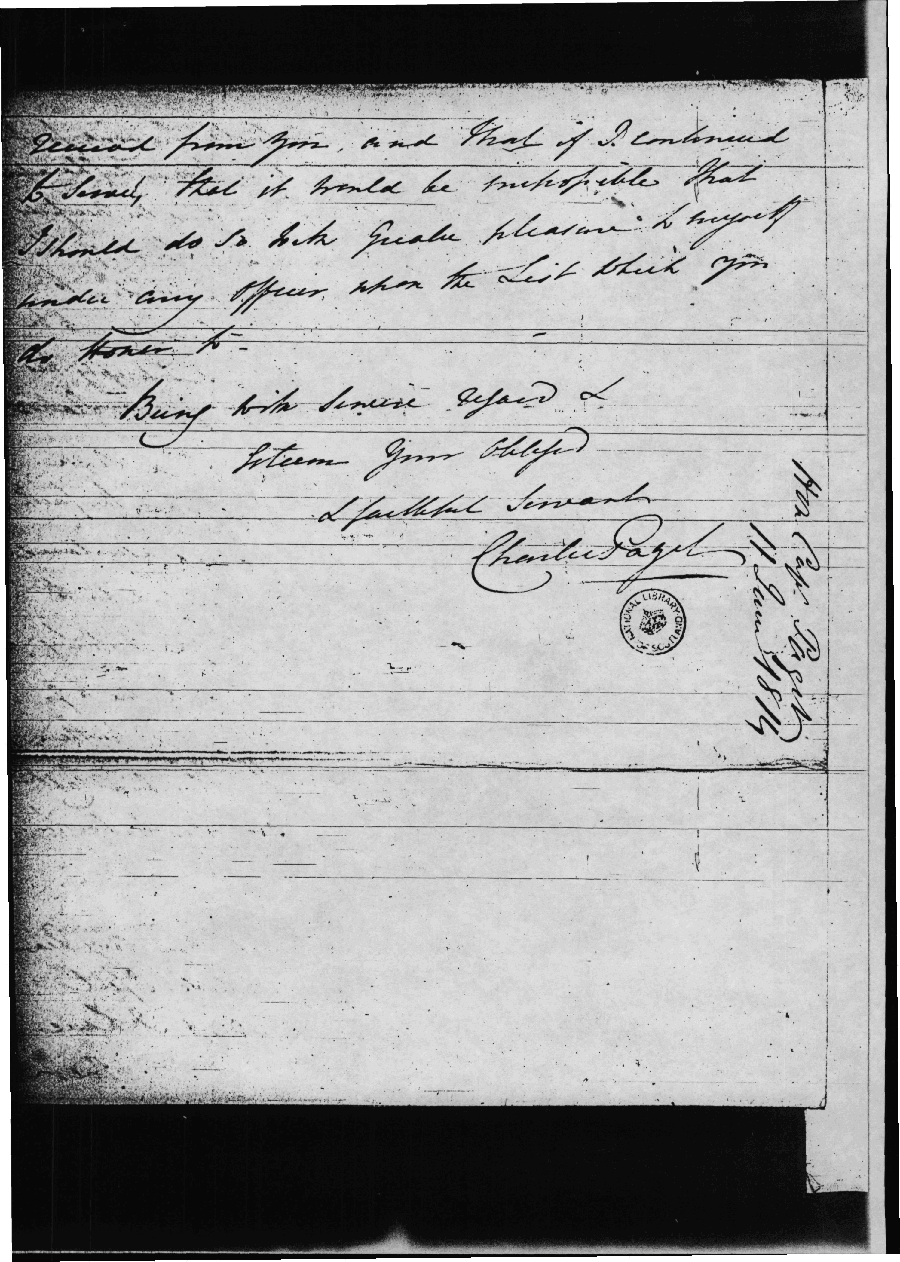 received from you, and that if I continued
to serve, that it would be impossible that
I should do so with Greater pleasure to myself
under any officer upon the List which you
do Honor to -
Being with sincere regard &
Esteem Your Obliged
& faithful Servant
Charles Paget
NATIONAL LIBRARY OF SCOTLAND
Hon Cap. Paget
11 Jany 1814